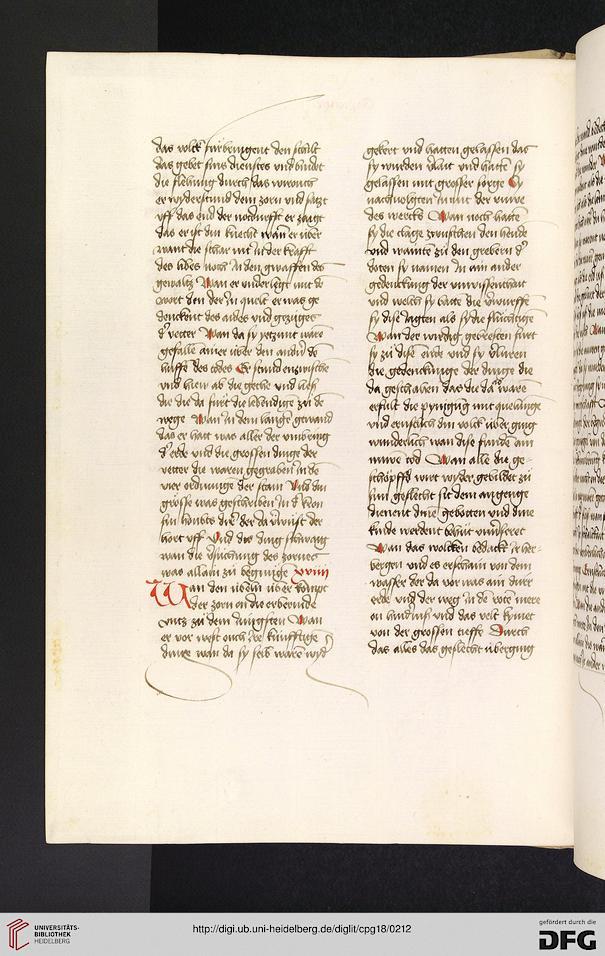 das volck fürbringent den schilt
das gebet sins dienstes und bindet
die flehung durch das wirouch
er wyderstund dem zorn und satzt
uff das end der notdurfft er zaigt
das er ist din knecht wann er über
want die schar nit in der krafft
des libes noch in den gewaffen des
gewaltz Wan er underlegt mit de
wort den der in quelt er was ge
denckent des aides und gezüges
d' vetter Wan da sy yetzunt ware
gefalle ainer über den andn de
huffe des todes Er stund enzwische
und hiew ab die geche und ließ
die die da fürt die lebendige zu de
wege Wan in dem langen gewand
das er hatt was aller der umbring
d' erde und die grossen dinge der
vetter die waren gegraben in de
vier ordnunge der stain Und din
grösse was geschriben in d' kron
sin houbts die der da verwüst der
hort uff Und die ding
wan die versuchung des zornes
was allain zu beginnge xviij
Wan den übeln über kompt
der zorn on die erbermde
untz zu dem jüngsten Wan
er vor west ouch ire künfftige
dinge wan da sy selb waren wyd
gekert und hatten gelassen das
sy wurden und hatte sy
gelassen mit grosser sorge Sy
nachvolgten in mit der ruwe
des wercks Wan noch hatte
sy die clage zwuschen den hende
und wainte zu den grebern d'
doten sy namen in ain ander
gedenckung der unwissenhait
und welch sy hatte die vßwurffe
sy dise iagten als sy die flüchtige
Wan der wirdig gebresten fürt
sy zu disem ende und sy verluren
die gedenckunge der dinge die
da geschahen das die da ware
erfült die pynigug mit quelunge
und ernstlich din volck über ging
wunderlich wan dise funden ain
nuwen tod Wan alle die ge-
schöpffd wirt wyder gebildet zu
sim geslecht sit dem angenge
dienent dine gebotten und dine
kinde werdent behüt unverseret
Wan das wolcken bedackt ir her-
bergen und es erschain von dem
wasser der da vor was ain dürr
erde und der weg in de roten mere
on hindnuß und das velt kymet
von der grossen tieffe Durch
das alles das geslecht überging
UNIVERSITÄTS-
BIBLIOTHEK
HEIDELBERG
http://digi.ub.uni-heidelberg.de/diglit/cpg18/0212
gefördert durch die
DFG